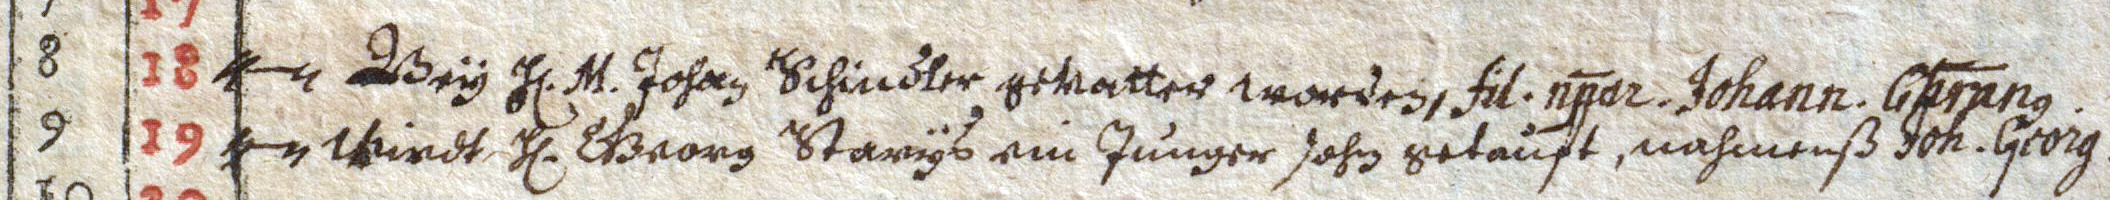 17
8 18 Beÿ H. M. Johan Schindler gevatter worden, fil. Johann.
9 19 Wirdt H. Georg Starÿs ein Junger sohn getauft, nahmenß Joh. Georg.
10 20